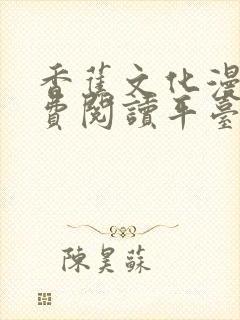 香蕉文化漫
費閱讀平臺
陳昊蘇